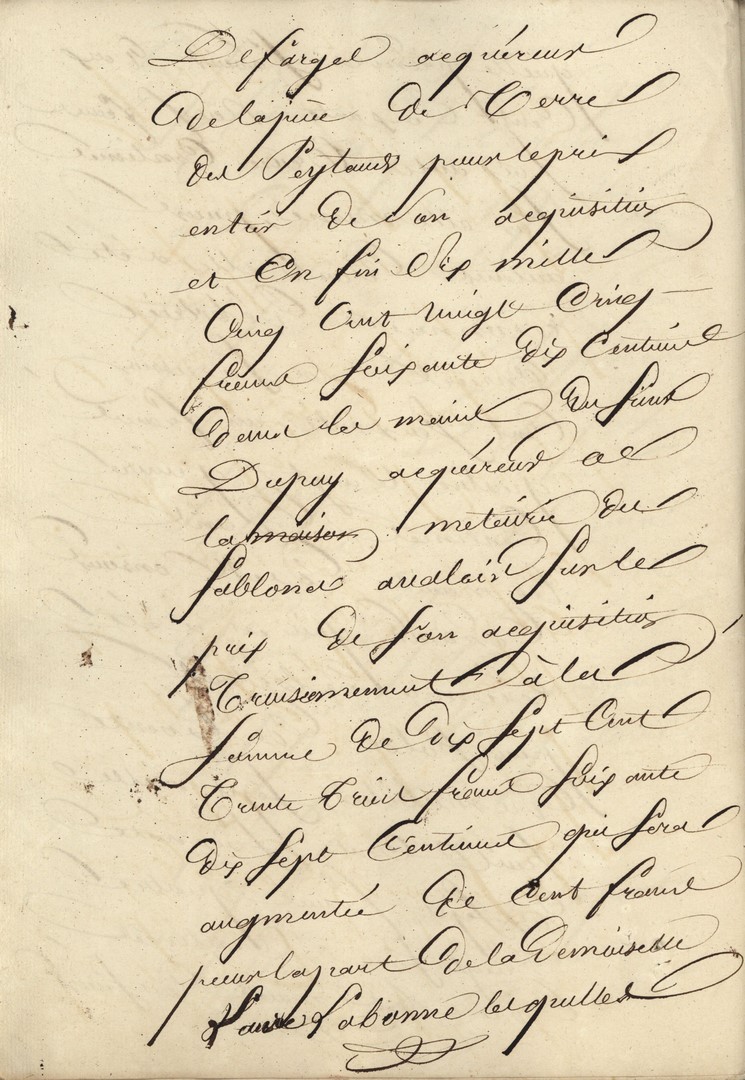 Defargel acquéreur
de la pièce de Terre
des Peytaud pour le prix
entier de son acquisition
et En fin Six mille
Cinq Cent vingt Cinq
francs soixante Dix Centimes
dans les mains Du Sieur
Dupuy acquéreur de
la maison métairie du
Sablond au Clair Sur le
prix de son acquisition
Troisiemement à la
somme de Dix Sept Cent
Trente Trois francs soixante
Dix sept Centimes qui sera
augmentée de Cent francs
pour la part de la Demoiselle
Labonne lesquelles